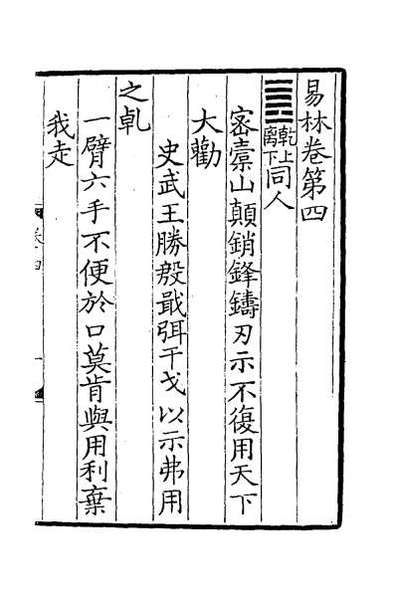 易林卷第四
䷌乾上離下同人
密橐山顛銷鋒鑄刃示不復用天下
大勸
史武王勝殷戢弭干戈以示弗用
之乹
一臂六手不便於口莫肯與用利棄
我走